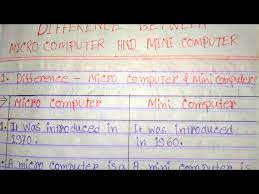 DIFFERENCE BETWEEN
MICRO COMPUTER AND MINI COMPUTER
1. Difference - Micro computer & Mini computers
Micro computer Mini computer
1. It was introduced in 1970. It was introduced in 1960.
A micro computer is a A mini computer is